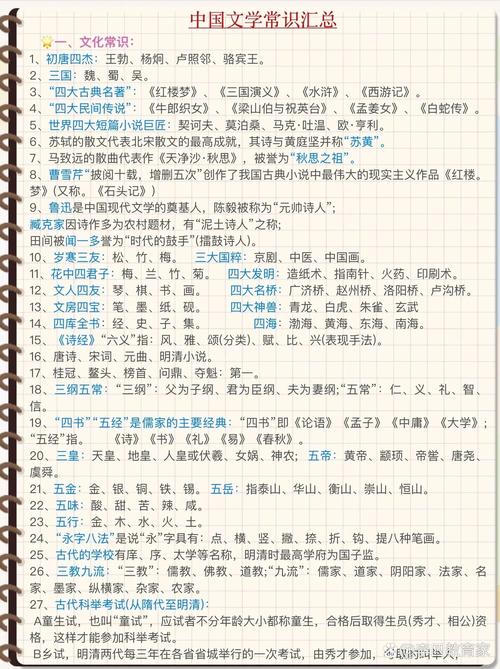 中国文学常识汇总
一、文化常识:
1、初唐四杰: 王勃、杨炯、卢照邻、骆宾王。
2、三国: 魏、蜀、吴。
3、“四大古典名著”: 《红楼梦》、《三国演义》、《水浒》、《西游记》。
4、“四大民间传说”: 《牛郎织女》、《梁山伯与祝英台》、《孟姜女》、《白蛇传》。
5、世界四大短篇小说巨匠: 契诃夫、莫泊桑、马克·吐温、欧·亨利。
6、苏轼的散文代表北宋散文的最高成就，其诗与黄庭坚并称“苏黄”。
7、马致远的散曲代表作《天净沙·秋思》，被誉为“秋思之祖”。
8、曹雪芹“披阅十载，增删五次”创作了我国古典小说中最伟大的现实主义作品《红楼。
梦》(又称。《石头记》)
9、鲁迅是中国现代文学的奠基人，陈毅被称为“元帅诗人”;
臧克家因诗作多为农村题材，有“泥土诗人”之称;
田间被闻一多誉为“时代的鼓手”(擂鼓诗人)。
10、岁寒三友: 松、竹、梅。 三大国粹: 京剧、中医、中国画。
11、花中四君子: 梅、兰、竹、菊。 四大发明: 造纸术、指南针、火药、印刷术。
12、文人四友: 琴、棋、书、画。 四大名桥: 广济桥、赵州桥、洛阳桥、卢沟桥。
13、文房四宝: 笔、墨、纸、砚。 四大神兽: 青龙、白虎、朱雀、玄武
14、四库全书: 经、史、子、集。 四海: 渤海、黄海、东海、南海。
15、《诗经》“六义”指: 风、雅、颂(分类)、赋、比、兴(表现手法)。
16、唐诗、宋词、元曲、明清小说。
17、桂冠、鳌头、榜首、问鼎、夺魁: 第一。
18、三纲五常: “三纲”: 父为子纲、君为臣纲、夫为妻纲;“五常”: 仁、义、礼、智、
信。
19、“四书”“五经”是儒家的主要经典: “四书”即《论语》《孟子》《中庸》《大学》;
“五经”指。 《诗》《书》《礼》《易》《春秋》。
20、三皇: 天皇、地皇、人皇或伏羲、女娲、神农; 五帝: 黄帝、颛顼、帝喾、唐尧、
虞舜。
21、五金: 金、银、铜、铁、锡。 五岳: 指泰山、华山、衡山、崇山、恒山。
22、五味: 酸、甜、苦、辣、咸。
23、五行: 金、木、水、火、土。
24、“永字八法”是说“永”字具有: 点、横、竖、撇、捺、折、钩、提八种笔画。
25、古代的学校有庠、序、太学等名称，明清时最高学府为国子监。
26、三教九流: “三教”: 儒教、佛教、道教;“九流”: 儒家、道家、阴阳家、法家、名
家、墨家、纵横家、杂家、农家。
27、古代科举考试(从隋代至明清):
A童生试，也叫“童试”，应试者不分年龄大小都称童生，合格后取得生员(秀才、相公)资
格，这样才能参加科举考试。
B乡试，明清两代每三年在各省省城举行的一次考试，由秀才参加，